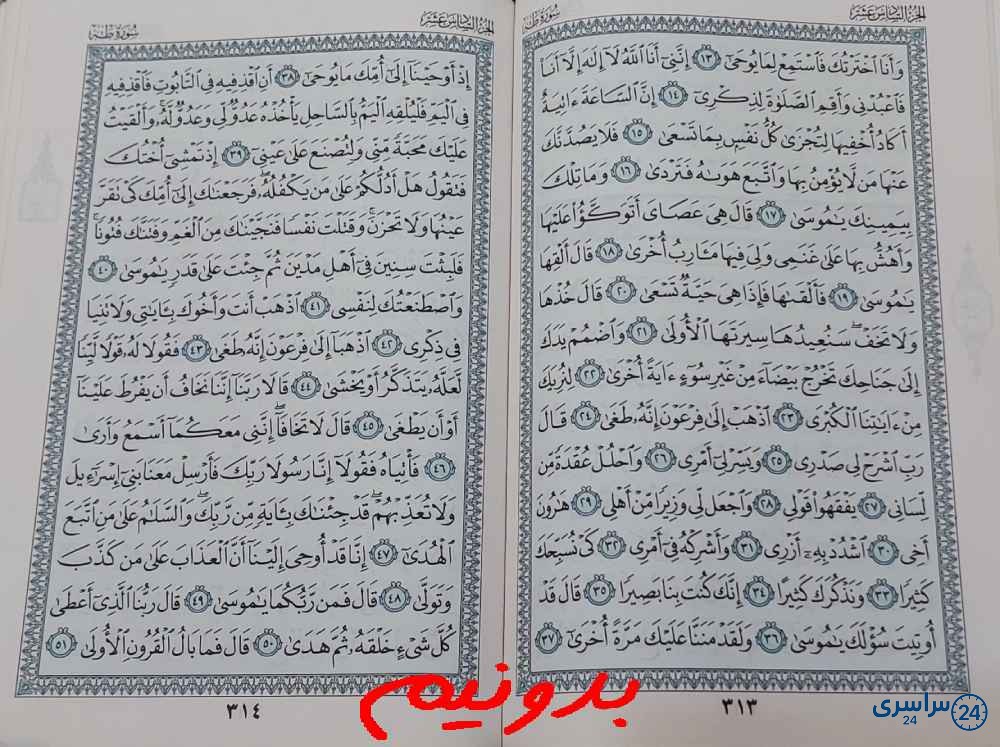 الجزء السادس عشر
سورة طه
وَأَنَا ٱخْتَرْتُكَ فَٱسْتَمِعْ لِمَا يُوحَىٰٓ ١٣ إِنَّنِىٓ أَنَا ٱللَّهُ لَآ إِلَٰهَ إِلَّآ أَنَا۠
فَٱعْبُدْنِى وَأَقِمِ ٱلصَّلَوٰةَ لِذِكْرِىٓ ١٤ إِنَّ ٱلسَّاعَةَ ءَاتِيَةٌ
أَكَادُ أُخْفِيهَا لِتُجْزَىٰ كُلُّ نَفْسٍۭ بِمَا تَسْعَىٰ ١٥ فَلَا يَصُدَّنَّكَ
عَنْهَا مَن لَّا يُؤْمِنُ بِهَا وَٱتَّبَعَ هَوَىٰهُ فَتَرْدَىٰ ١٦ وَمَا تِلْكَ
بِيَمِينِكَ يَٰمُوسَىٰ ١٧ قَالَ هِىَ عَصَاىَ أَتَوَكَّؤُا۟ عَلَيْهَا
وَأَهُشُّ بِهَا عَلَىٰ غَنَمِى وَلِىَ فِيهَا مَـَٔارِبُ أُخْرَىٰ ١٨ قَالَ أَلْقِهَا
يَٰمُوسَىٰ ١٩ فَأَلْقَىٰهَا فَإِذَا هِىَ حَيَّةٌ تَسْعَىٰ ٢٠ قَالَ خُذْهَا
وَلَا تَخَفْ سَنُعِيدُهَا سِيرَتَهَا ٱلْأُولَىٰ ٢١ وَٱضْمُمْ يَدَكَ
إِلَىٰ جَنَاحِكَ تَخْرُجْ بَيْضَآءَ مِنْ غَيْرِ سُوٓءٍ ءَايَةً أُخْرَىٰ ٢٢ لِنُرِيَكَ
مِنْ ءَايَٰتِنَا ٱلْكُبْرَى ٢٣ ٱذْهَبْ إِلَىٰ فِرْعَوْنَ إِنَّهُۥ طَغَىٰ ٢٤ قَالَ
رَبِّ ٱشْرَحْ لِى صَدْرِى ٢٥ وَيَسِّرْ لِىٓ أَمْرِى ٢٦ وَٱحْلُلْ عُقْدَةً مِّن
لِّسَانِى ٢٧ يَفْقَهُوا۟ قَوْلِى ٢٨ وَٱجْعَل لِّى وَزِيرًا مِّنْ أَهْلِى ٢٩ هَٰرُونَ
أَخِى ٣٠ ٱشْدُدْ بِهِۦٓ أَزْرِى ٣١ وَأَشْرِكْهُ فِىٓ أَمْرِى ٣٢ كَىْ نُسَبِّحَكَ
كَثِيرًا ٣٣ وَنَذْكُرَكَ كَثِيرًا ٣٤ إِنَّكَ كُنتَ بِنَا بَصِيرًا ٣٥ قَالَ قَدْ
أُوتِيتَ سُؤْلَكَ يَٰمُوسَىٰ ٣٦ وَلَقَدْ مَنَنَّا عَلَيْكَ مَرَّةً أُخْرَىٰٓ ٣٧
٣١٣
الجزء السادس عشر
سورة طه
إِذْ أَوْحَيْنَآ إِلَىٰٓ أُمِّكَ مَا يُوحَىٰٓ ٣٨ أَنِ ٱقْذِفِيهِ فِى ٱلتَّابُوتِ فَٱقْذِفِيهِ
فِى ٱلْيَمِّ فَلْيُلْقِهِ ٱلْيَمُّ بِٱلسَّاحِلِ يَأْخُذْهُ عَدُوٌّ لِّى وَعَدُوٌّ لَّهُۥ وَأَلْقَيْتُ
عَلَيْكَ مَحَبَّةً مِّنِّى وَلِتُصْنَعَ عَلَىٰ عَيْنِىٓ ٣٩ إِذْ تَمْشِىٓ أُخْتُكَ
فَتَقُولُ هَلْ أَدُلُّكُمْ عَلَىٰ مَن يَكْفُلُهُۥ فَرَجَعْنَٰكَ إِلَىٰٓ أُمِّكَ كَىْ تَقَرَّ
عَيْنُهَا وَلَا تَحْزَنَ وَقَتَلْتَ نَفْسًا فَنَجَّيْنَٰكَ مِنَ ٱلْغَمِّ وَفَتَنَّٰكَ فُتُونًا
فَلَبِثْتَ سِنِينَ فِىٓ أَهْلِ مَدْيَنَ ثُمَّ جِئْتَ عَلَىٰ قَدَرٍ يَٰمُوسَىٰ ٤٠
وَٱصْطَنَعْتُكَ لِنَفْسِى ٤١ ٱذْهَبْ أَنتَ وَأَخُوكَ بِـَٔايَٰتِى وَلَا تَنِيَا
فِى ذِكْرِى ٤٢ ٱذْهَبَآ إِلَىٰ فِرْعَوْنَ إِنَّهُۥ طَغَىٰ ٤٣ فَقُولَا لَهُۥ قَوْلًا لَّيِّنًا
لَّعَلَّهُۥ يَتَذَكَّرُ أَوْ يَخْشَىٰ ٤٤ قَالَا رَبَّنَآ إِنَّنَا نَخَافُ أَن يَفْرُطَ عَلَيْنَآ
أَوْ أَن يَطْغَىٰ ٤٥ قَالَ لَا تَخَافَآ إِنَّنِى مَعَكُمَآ أَسْمَعُ وَأَرَىٰ
٤٦ فَأْتِيَاهُ فَقُولَآ إِنَّا رَسُولَا رَبِّكَ فَأَرْسِلْ مَعَنَا بَنِىٓ إِسْرَٰٓءِيلَ
وَلَا تُعَذِّبْهُمْ قَدْ جِئْنَٰكَ بِـَٔايَةٍ مِّن رَّبِّكَ وَٱلسَّلَٰمُ عَلَىٰ مَنِ ٱتَّبَعَ
ٱلْهُدَىٰٓ ٤٧ إِنَّا قَدْ أُوحِىَ إِلَيْنَآ أَنَّ ٱلْعَذَابَ عَلَىٰ مَن كَذَّبَ
وَتَوَلَّىٰ ٤٨ قَالَ فَمَن رَّبُّكُمَا يَٰمُوسَىٰ ٤٩ قَالَ رَبُّنَا ٱلَّذِىٓ أَعْطَىٰ
كُلَّ شَىْءٍ خَلْقَهُۥ ثُمَّ هَدَىٰ ٥٠ قَالَ فَمَا بَالُ ٱلْقُرُونِ ٱلْأُولَىٰ ٥١
٣١٤
بدونیم
سراسری 24
24